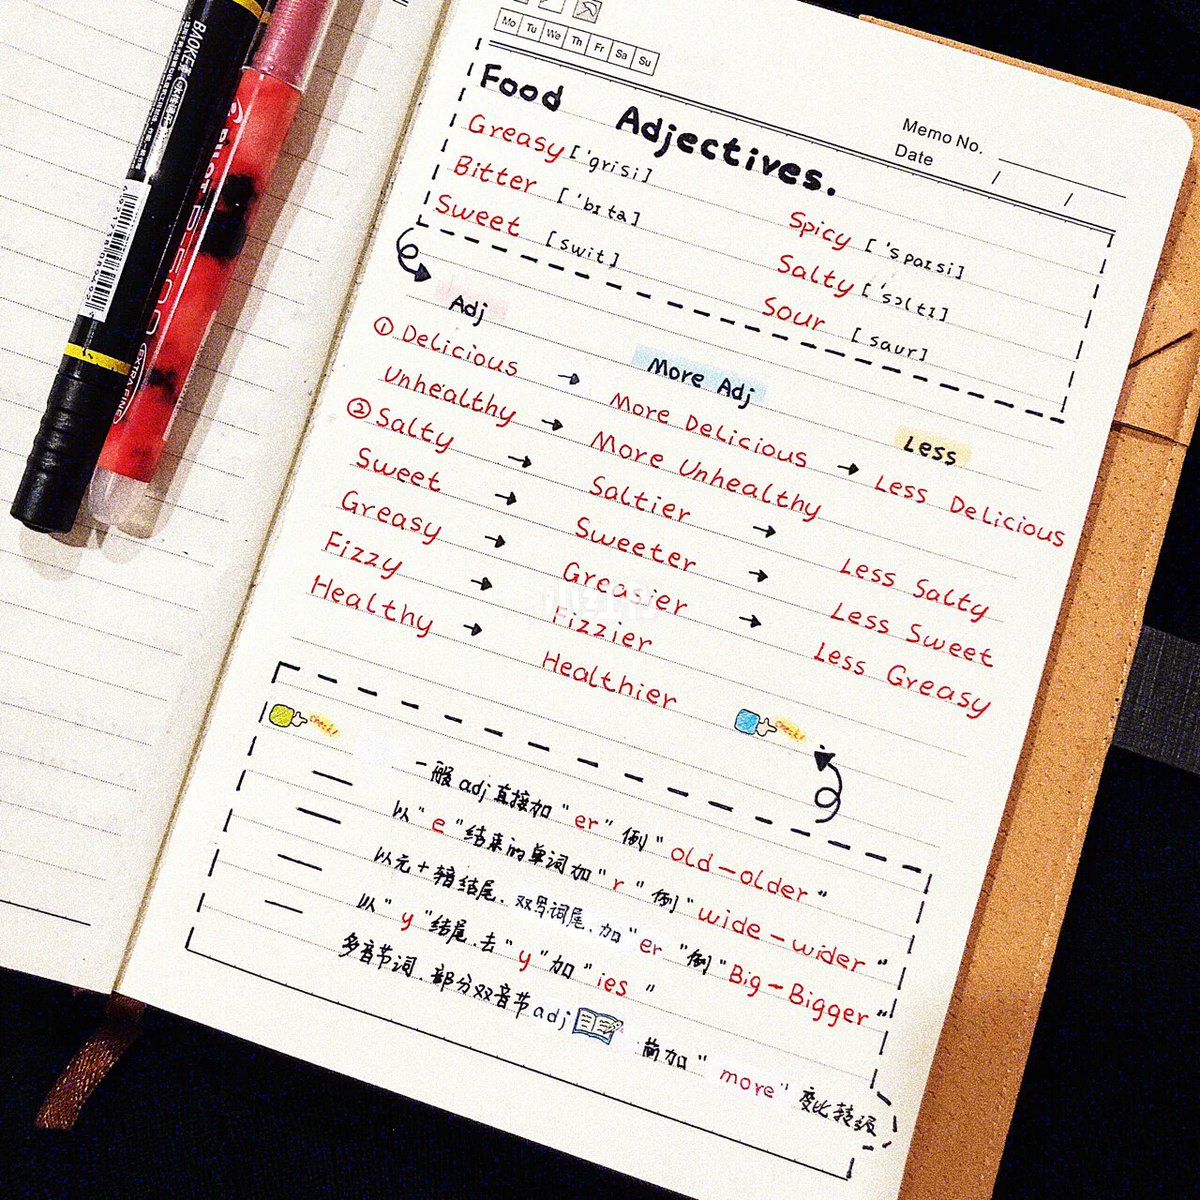 Mo Tu We Th Fr Sa Su
Memo No.
Date / /
Food Adjectives.
Greasy ['grisi]
Bitter ['bɪtə]
Sweet [swit]
Spicy ['spaɪsi]
Salty ['sɔltɪ]
Sour [saur]
Adj
More Adj
Less
① Delicious → More Delicious → Less Delicious
Unhealthy → More Unhealthy
② Salty → Saltier → Less Salty
Sweet → Sweeter → Less Sweet
Greasy → Greasier → Less Greasy
Fizzy → Fizzier
Healthy → Healthier
check!
check!
一般adj直接加"er"例"old-older"
以"e"结束的单词加"r"例"wide-wider"
以元+辅结尾.双写词尾.加"er"例"Big-Bigger"
以"y"结尾.去"y"加"ies"
多音节词.部分双音节adj 前加"more"变比较级
BAOKE
PILOT
EXTRA FINE